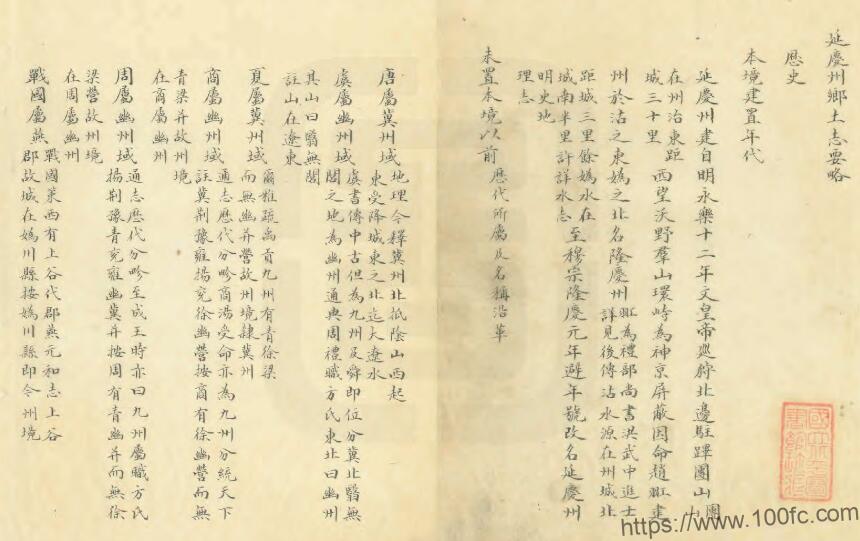 延慶州鄉土志要略
歷史
本境建置年代
延慶州建自明永樂十二年文皇帝巡狩北邊駐蹕團山團山
在州治東距城三十里西望沃野羣山環峙為神京屏蔽因命趙羾建
州於沽之東媯之北名隆慶州羾為禮部尚書洪武中進士詳見後傳沽水源在州城北
距城三里餘媯水在城南半里許詳水志至穆宗隆慶元年避年號改名延慶州
明史地理志
未置本境以前歷代所屬及名稱沿革
唐屬冀州域地理今釋冀州北抵陰山西起東受降城東之北迄大遼水
虞屬幽州域虞書傳中古但為九州及舜即位分冀北醫無閭之地為幽州通典周禮職方氏東北曰幽州
其山曰醫無閭註山在遼東
夏屬冀州域爾雅疏禹貢九州有青徐梁而無幽并營故州境隸冀州
商屬幽州域通志歷代分畛商湯受命亦為九州分統天下註冀荆豫雍揚兗徐幽營按商有徐幽營而無
青梁并故州境在商屬幽州
周屬幽州域通志歷代分畛至成王時亦曰九州屬職方氏揚荆豫青兗雍幽冀并按周有青幽并而無徐
梁營故州境在周屬幽州
戰國屬燕戰國策西有上谷代郡燕元和志上谷郡故城在媯川縣按媯川縣即今州境
https://www.100fc.com